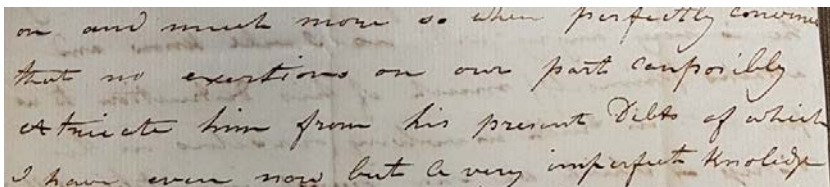 on and much more so when perfectly convinc
that no exertions on our part can possibly
extricate him from his present Debts of which
I have even now but a very imperfect Knolidge